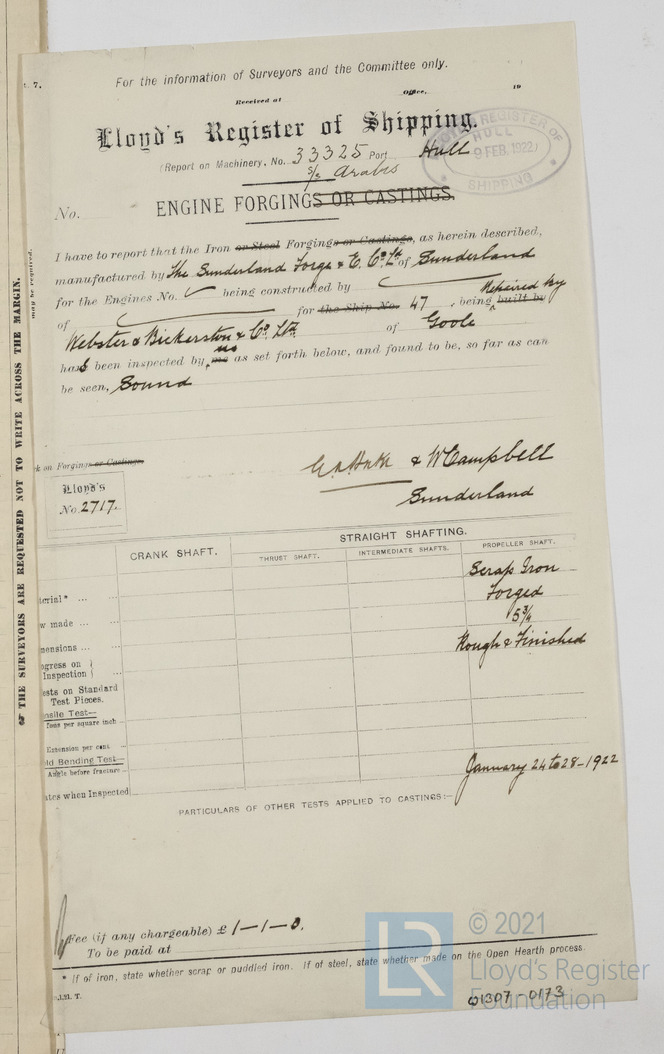 For the information of Surveyors and the Committee only.
Received at Office, 19
Lloyd's Register of Shipping.
(Report on Machinery, No. 33325 Port Hull
S/S Arabis
REGISTER OF
HULL
9 FEB. 1922
SHIPPING
No. ENGINE FORGINGS OR CASTINGS.
I have to report that the Iron or Steel Forgings or Castings, as herein described,
manufactured by The Sunderland Forge & E. Co. Ltd of Sunderland
for the Engines No. being constructed by
of for the Ship No. 47, being Repaired by built by
Webster & Bickerston & Co. Ltd. of Goole
has been inspected by us me as set forth below, and found to be, so far as can
be seen, Sound
on Forgings or Castings.
& W Campbell
Sunderland
Lloyd's
No. 2717.
STRAIGHT SHAFTING.
CRANK SHAFT. THRUST SHAFT. INTERMEDIATE SHAFTS. PROPELLER SHAFT.
terial* ... ... Scrap Iron
w made ... ... Forged
mensions ... ... 5 3/4
ogress on Inspection } ... Rough & Finished
ests on Standard
Test Pieces.
nsile Test—
Tons per square inch
Extension per cent
ld Bending Test—
Angle before fracture
ates when Inspected January 24 to 28-1922
PARTICULARS OF OTHER TESTS APPLIED TO CASTINGS:—
Fee (if any chargeable) £ 1-1-0.
To be paid at
* If of iron, state whether scrap or puddled iron. If of steel, state whether made on the Open Hearth process.
I.M. T.
W1307-0173
may be required.
☞ THE SURVEYORS ARE REQUESTED NOT TO WRITE ACROSS THE MARGIN.
LR
© 2021
Lloyd's Register
Foundation